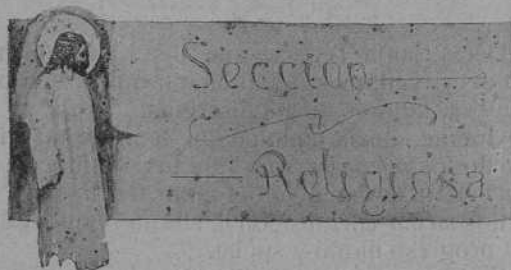 Seccion
Religiosa